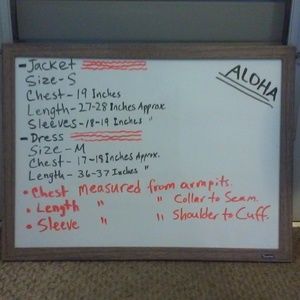 - Jacket
ALOHA
Size - S
Chest - 19 Inches
Length - 27-28 Inches Approx
Sleeves - 18-19 Inches "
- Dress
Size - M
Chest - 17-18 Inches Approx.
Length - 36-37 Inches "
• Chest measured from armpits.
• Length " " Collar to Seam.
• Sleeve " " Shoulder to Cuff.